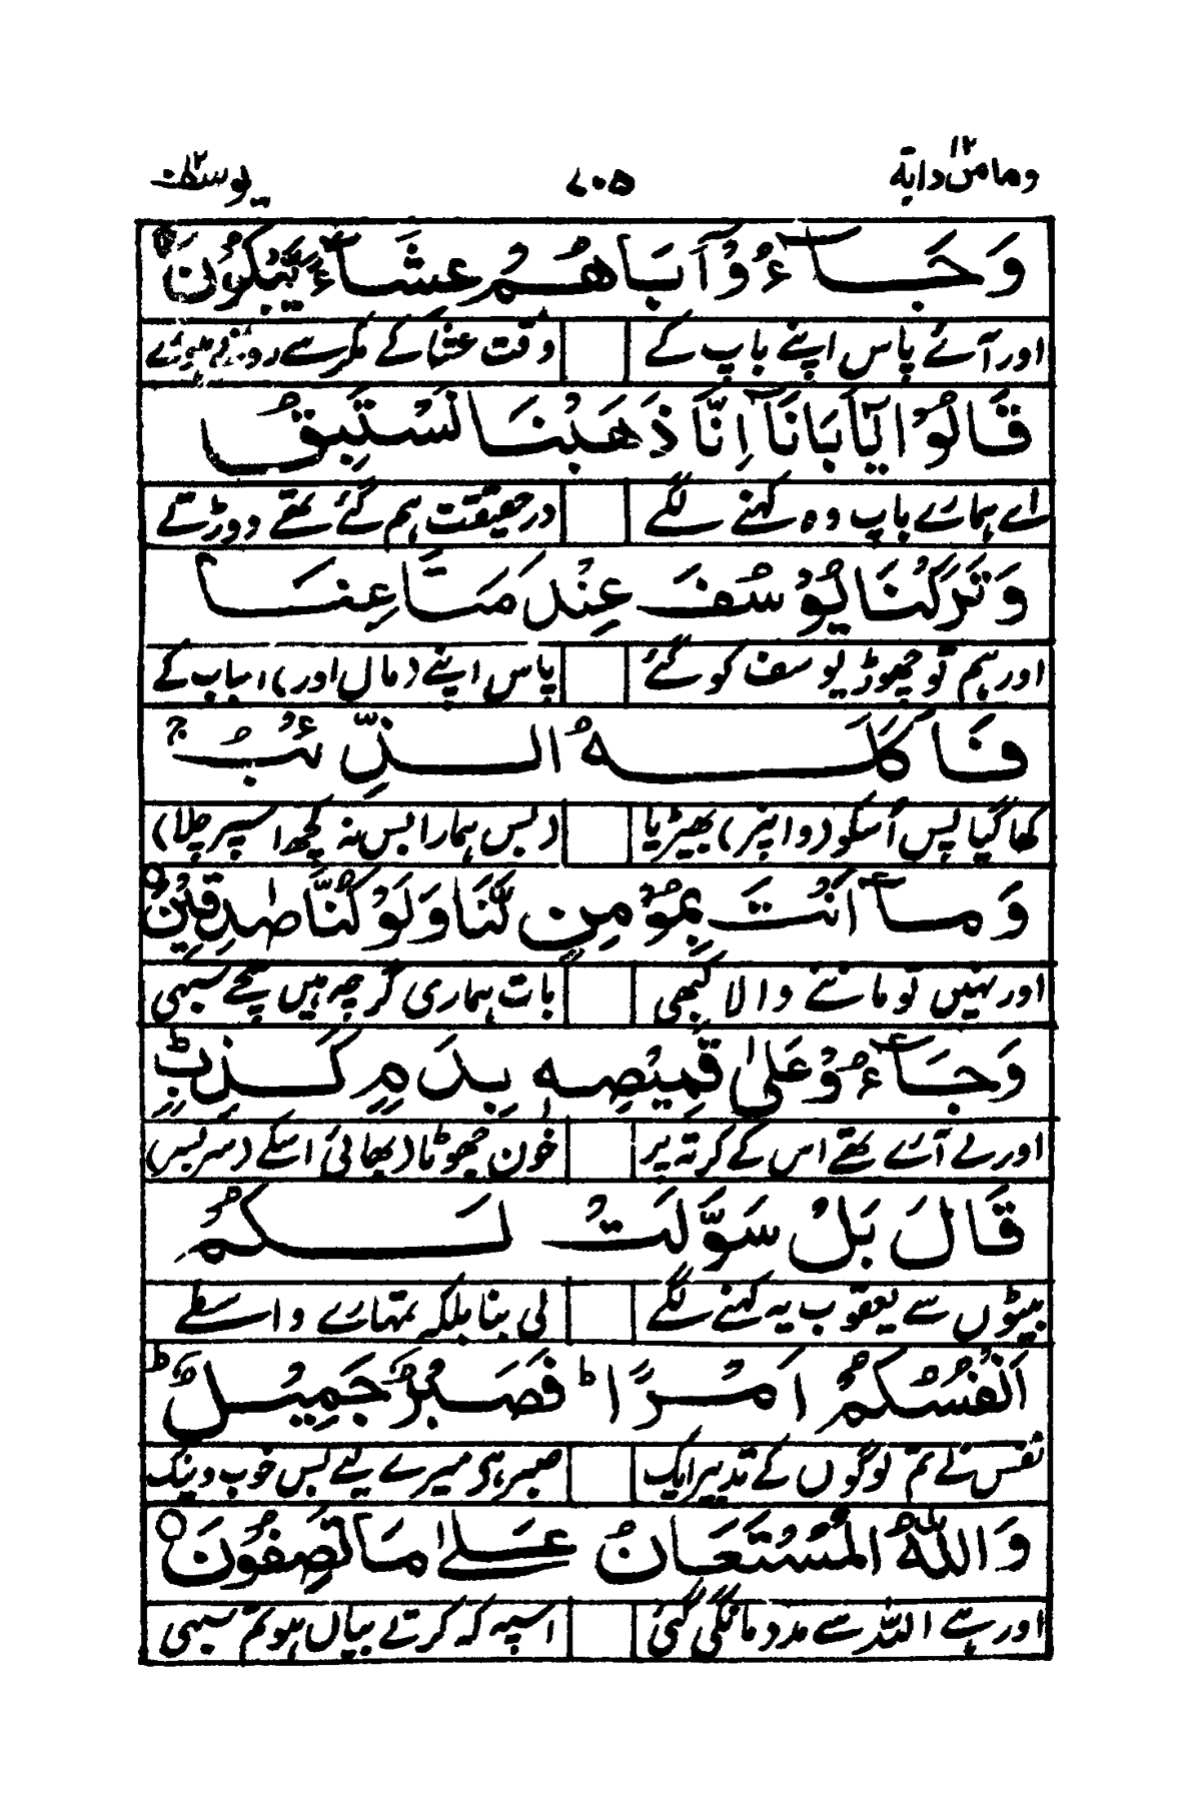 وما من دابة ١٢ ٧٠٥ یوسف ١٢
وَجَآءُوْٓ اَبَاهُمْ عِشَآءً يَّبْكُوْنَ
اور آئے پاس اپنے باپ کے وقت عشا کے مکر سے روتے ہوئے
قَالُوْا يٰٓاَبَانَآ اِنَّا ذَهَبْنَا نَسْتَبِقُ
اے ہمارے باپ وہ کہنے لگے درحقیقت ہم گئے تھے دوڑتے
وَتَرَكْنَا يُوْسُفَ عِنْدَ مَتَاعِنَا
اور ہم تو چھوڑ یوسف کو گئے پاس اپنے (مال اور) اسباب کے
فَاَكَلَهُ الذِّئْبُ ج
کھا گیا پس اسکو (وا پنر) بھیڑیا (بس ہمارا بس نہ کچھ اسپر چلا)
وَمَآ اَنْتَ بِمُؤْمِنٍ لَّنَا وَلَوْ كُنَّا صٰدِقِيْنَ ○
اور نہیں تو ماننے والا کبھی بات ہماری گرچہ ہیں سچے سبھی
وَجَآءُوْ عَلٰى قَمِيْصِهٖ بِدَمٍ كَذِبٍ ط
اور لے آئے تھے اس کے کرتہ پر خون جھوٹا (بھائی اسکے سربسر)
قَالَ بَلْ سَوَّلَتْ لَكُمْ
بیٹوں سے یعقوب یہ کہنے لگے لی بنا بلکہ تمہارے واسطے
اَنْفُسُكُمْ اَمْرًا ط فَصَبْرٌ جَمِيْلٌ ط
نفس نے تم لوگوں کے تدبیر ایک صبر ہی میرے لیے بس خوب و نیک
وَاللّٰهُ الْمُسْتَعَانُ عَلٰى مَا تَصِفُوْنَ ○
اور ہے اللہ سے مدد مانگی گئی اسپہ کہ کرتے بیاں ہو تم سبھی